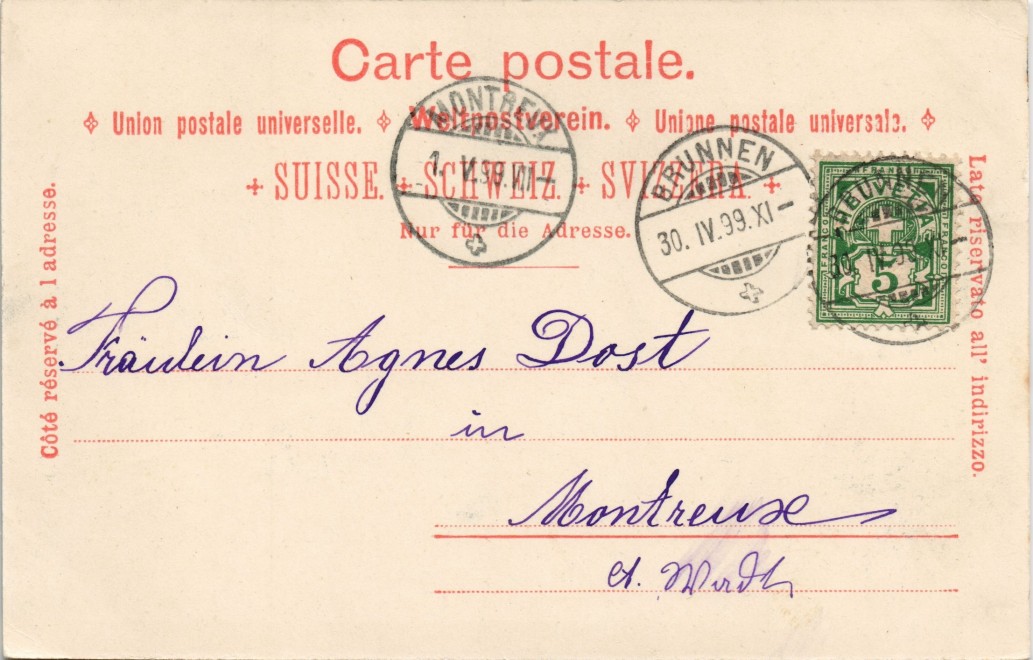 Carte postale.
Union postale universelle. Weltpostverein. Unione postale universale.
+ SUISSE. + SCHWEIZ. + SVIZZERA. +
Nur für die Adresse.
Côté réservé à l adresse.
Lato riservato all' indirizzo.
MONTREUX
1. V. 99. VII-
BRUNNEN
30. IV. 99. XI-
BRUNNEN
30. IV. 99. XI-
HELVETIA
FRANCO
FRANCO
5
Fräulein Agnes Dost
in
Montreux